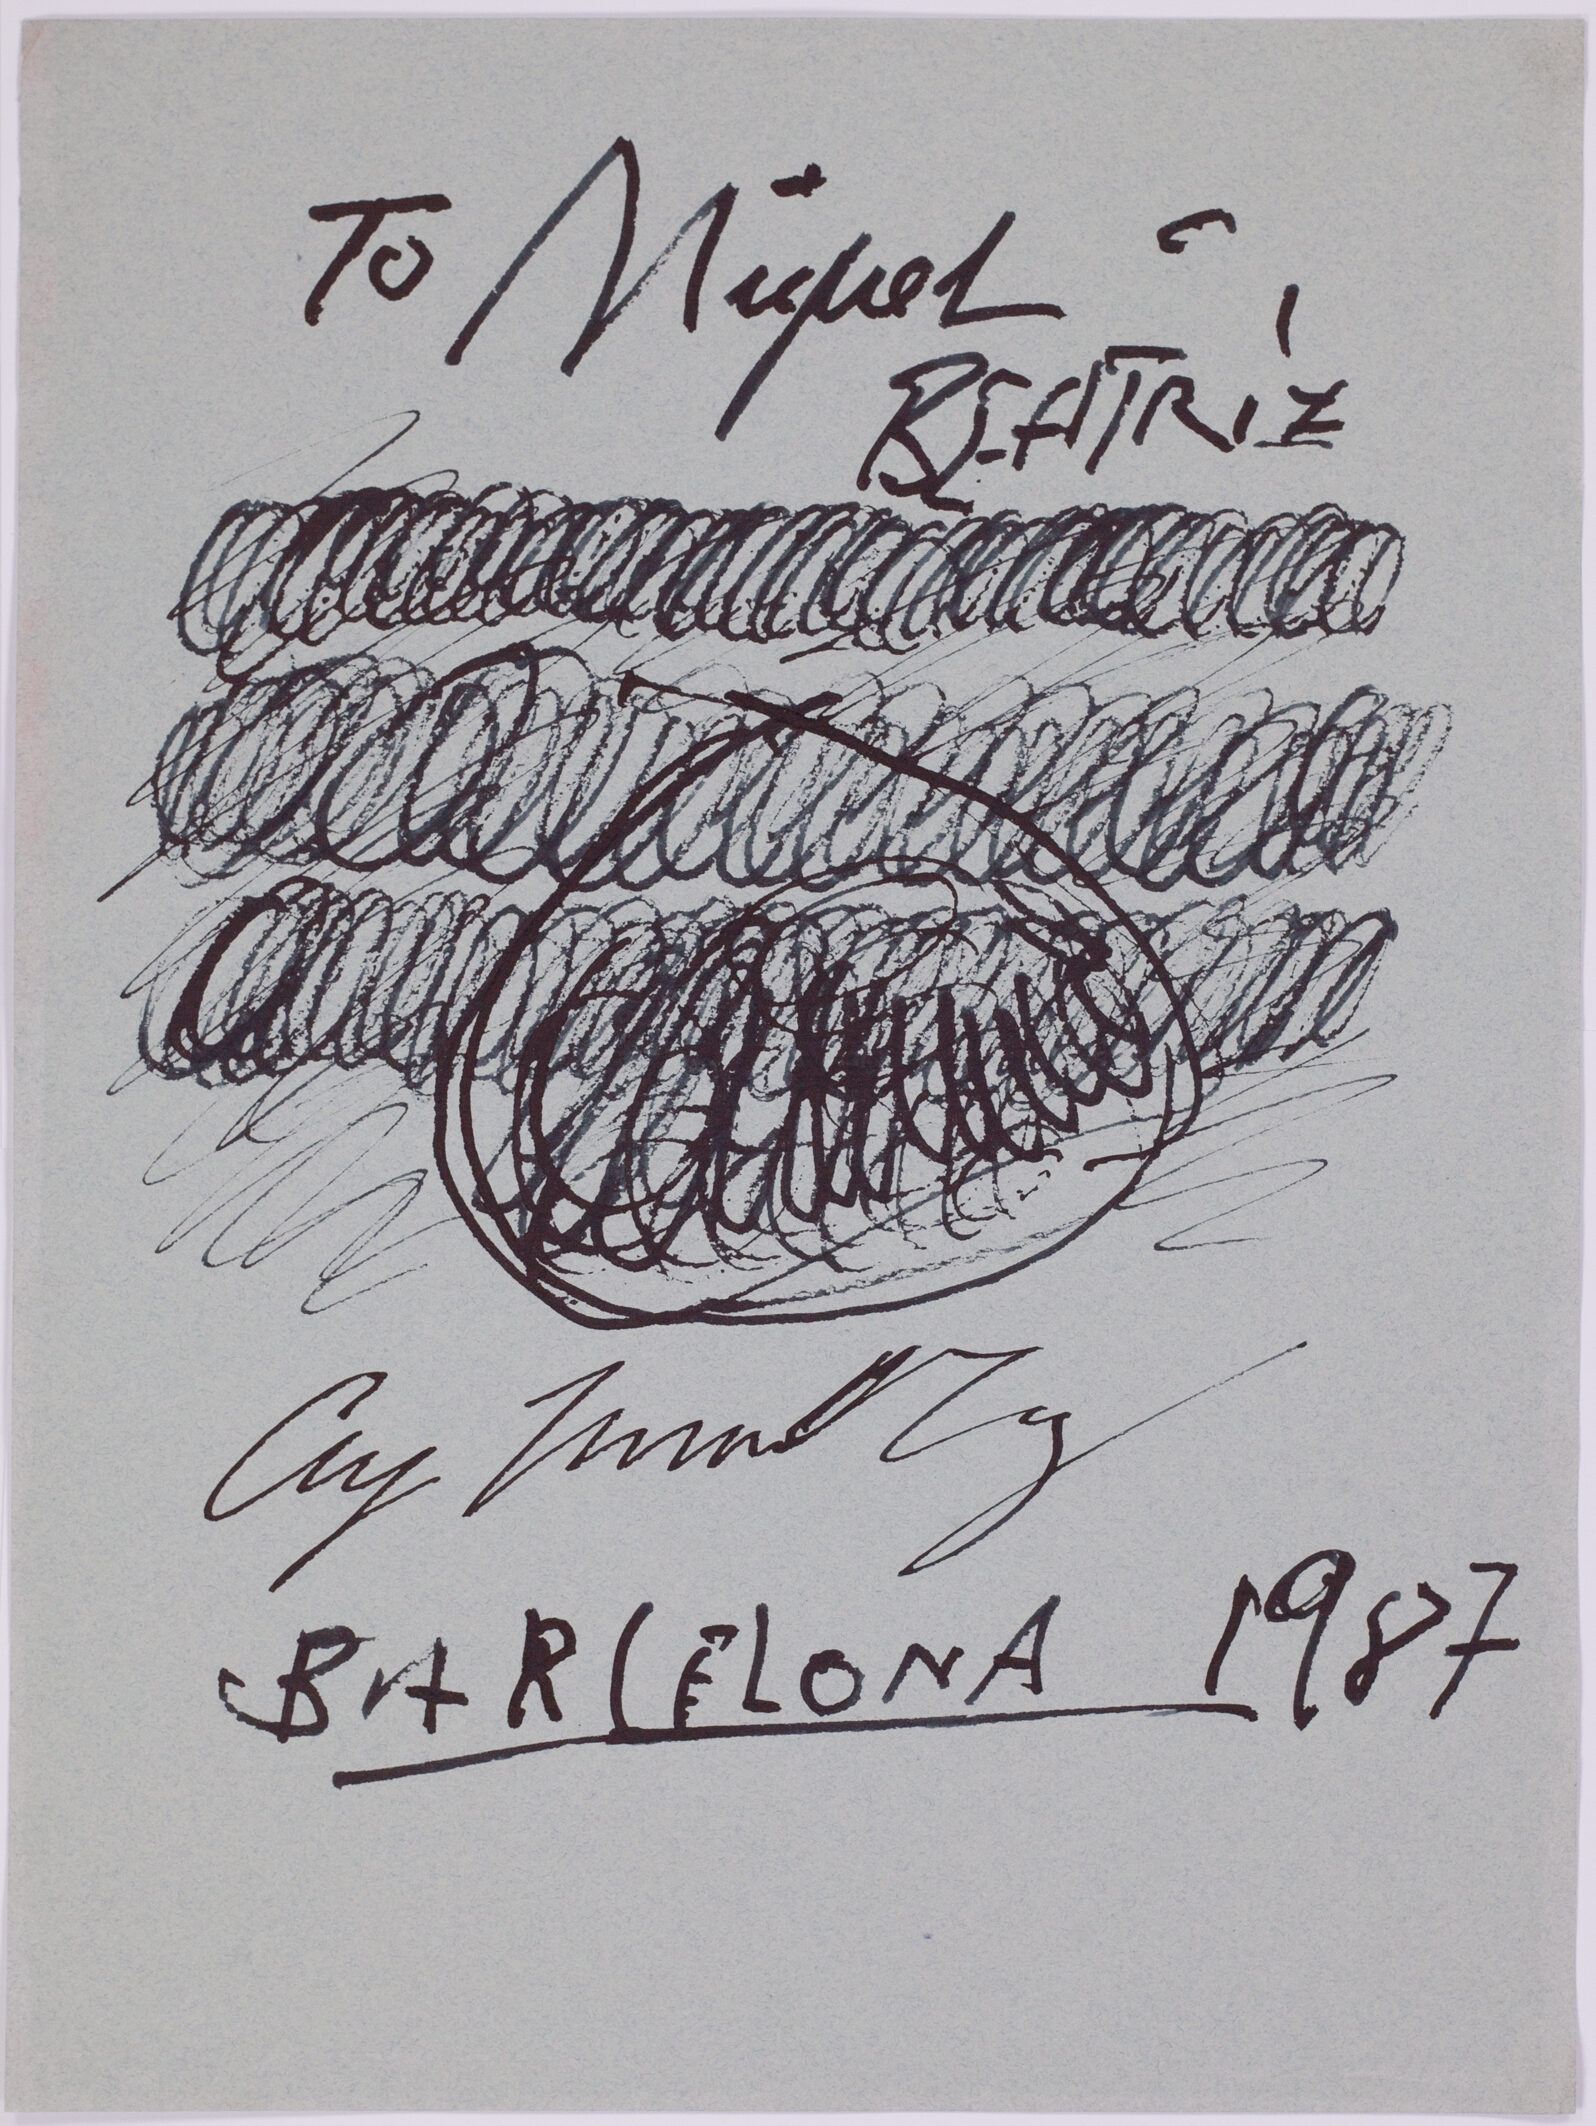 To Miguel
BEATRIZ
Cy Twombly
BARCELONA 1987